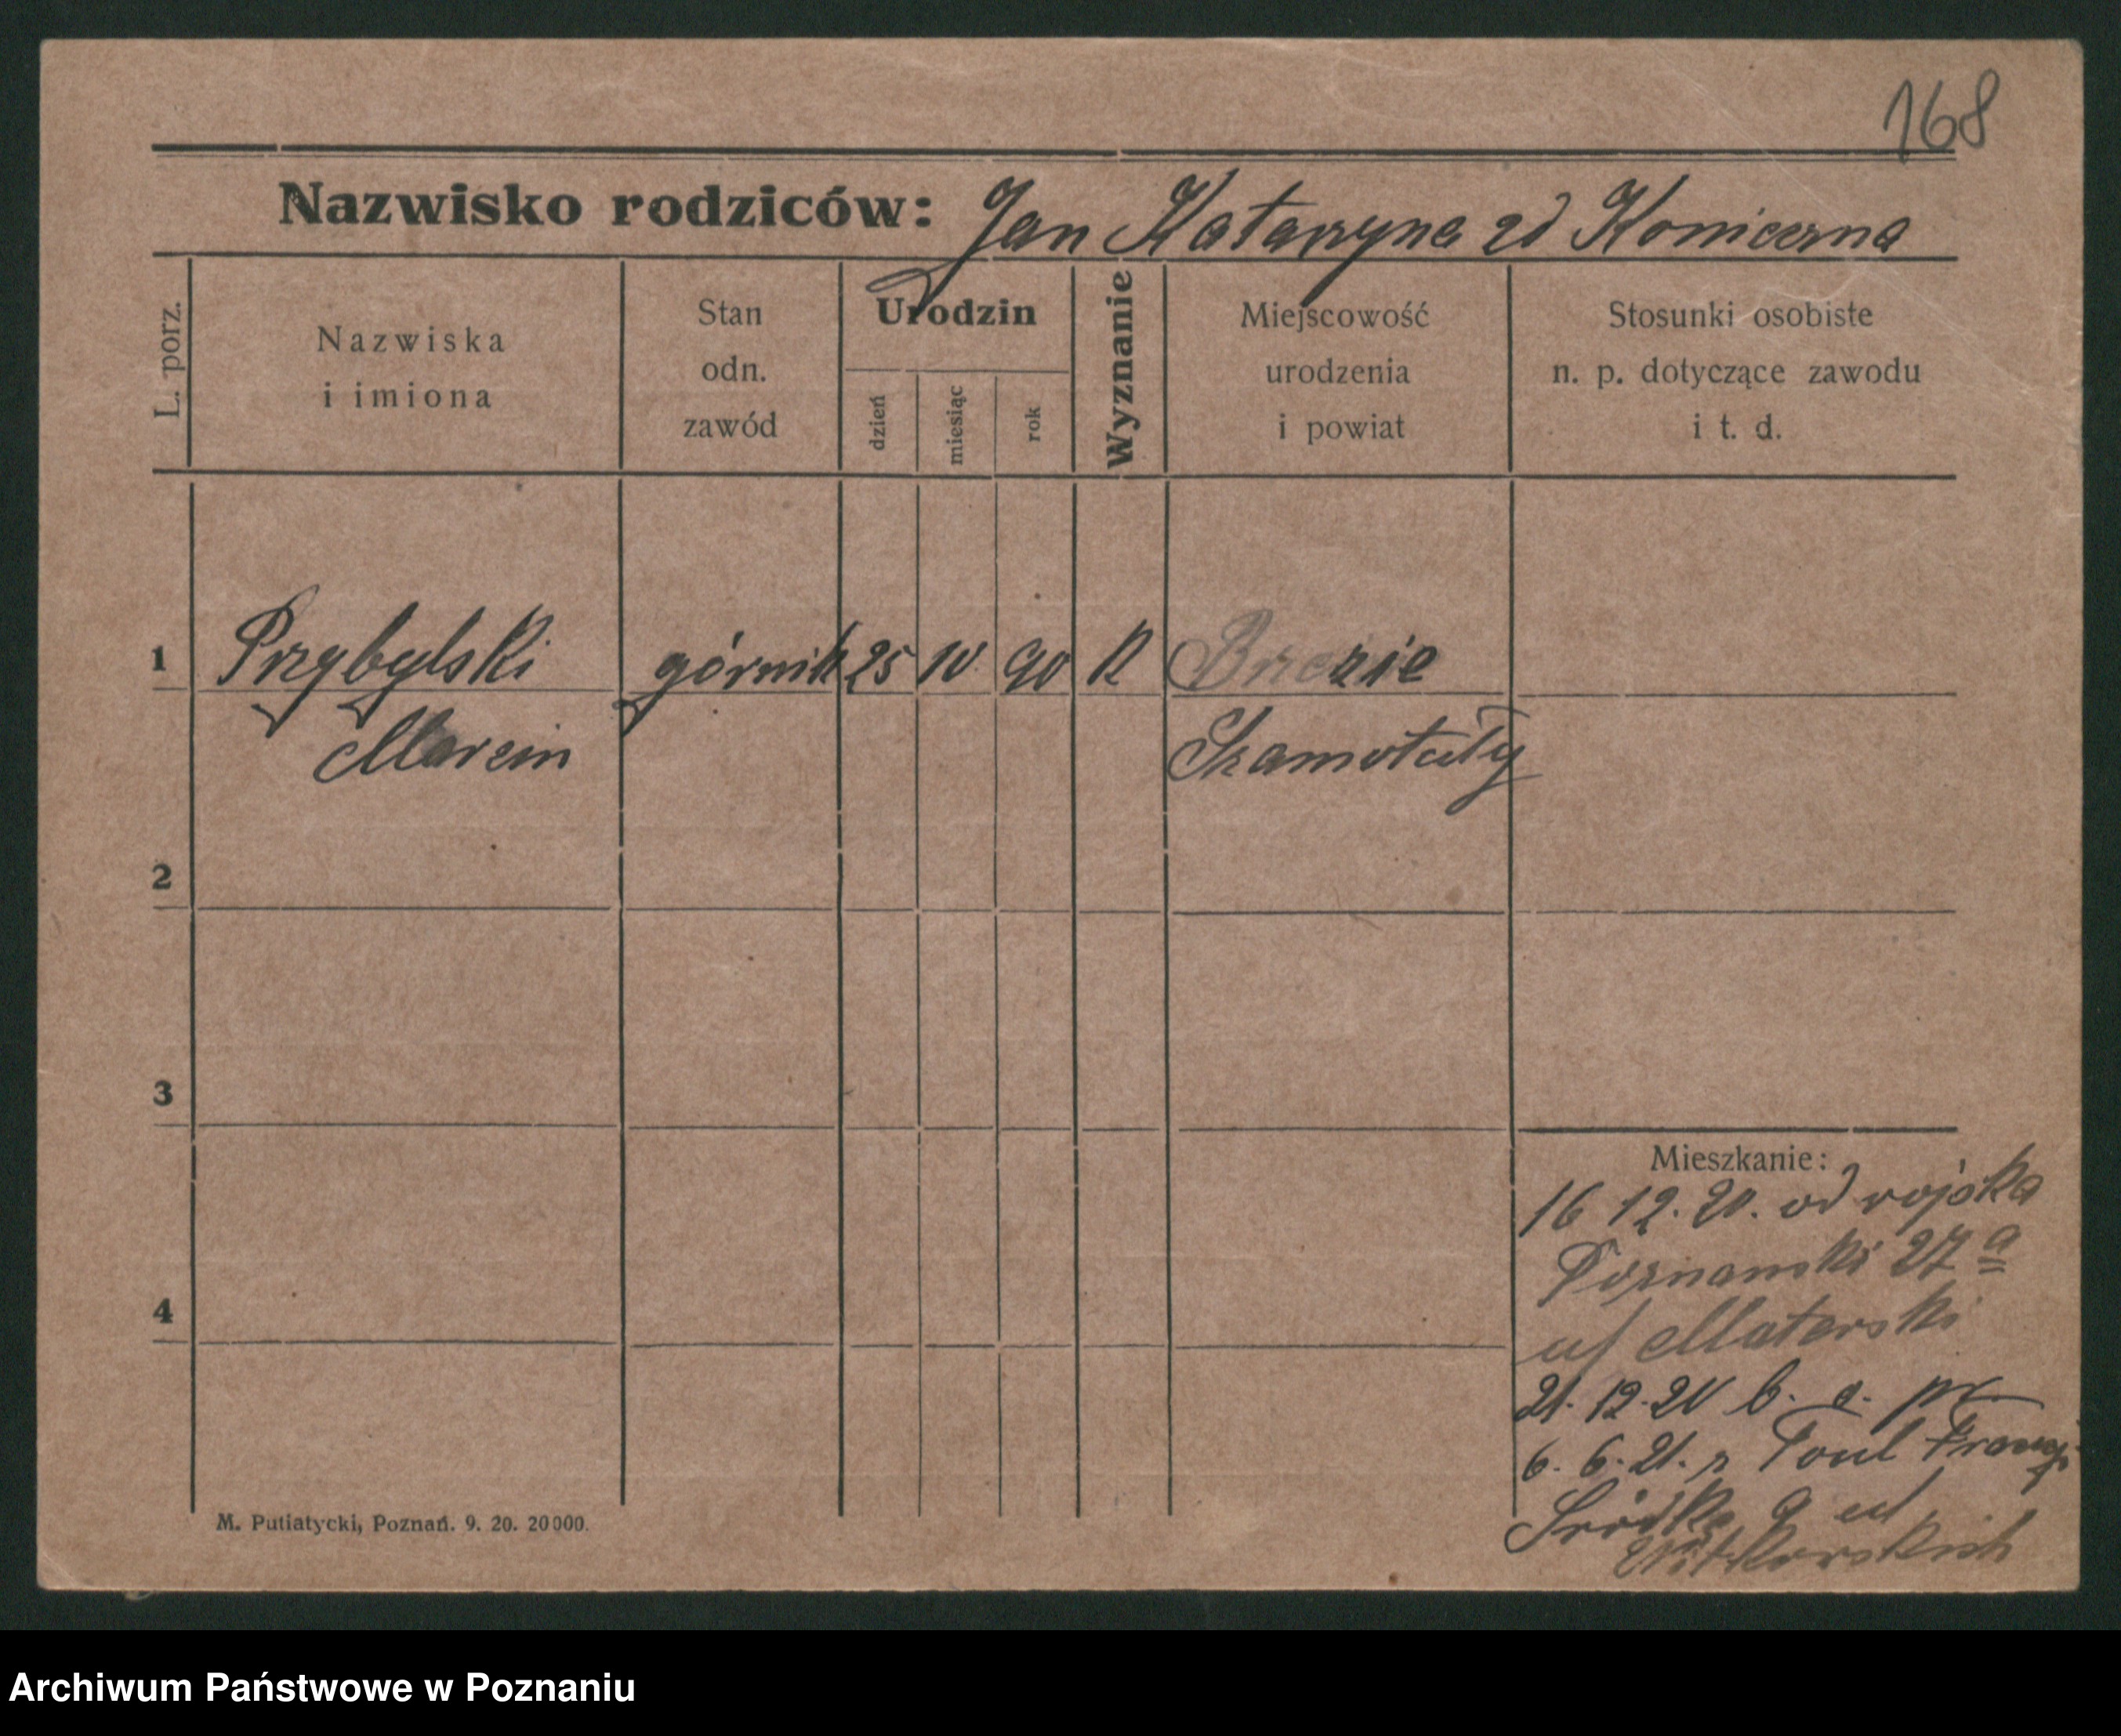 168
Nazwisko rodziców: Jan Katarzyna zd Konieczna
L. porz.
Nazwiska
i imiona
Stan
odn.
zawód
Urodzin
dzień
miesiąc
rok
Wyznanie
Miejscowość
urodzenia
i powiat
Stosunki osobiste
n. p. dotyczące zawodu
i t. d.
1 Przybylski górnik 25 10. 90 K Brzezie
Marcin Szamotuły
2
3
4
Mieszkanie:
16 12. 20. od wojska
Poznański 27 a
u/ Materski
21. 12. 20 b. a. pr
6. 6. 21. z Toul
Śródka 9 u/
Witkowskich
M. Putiatycki, Poznań. 9. 20. 20000.
Archiwum Państwowe w Poznaniu